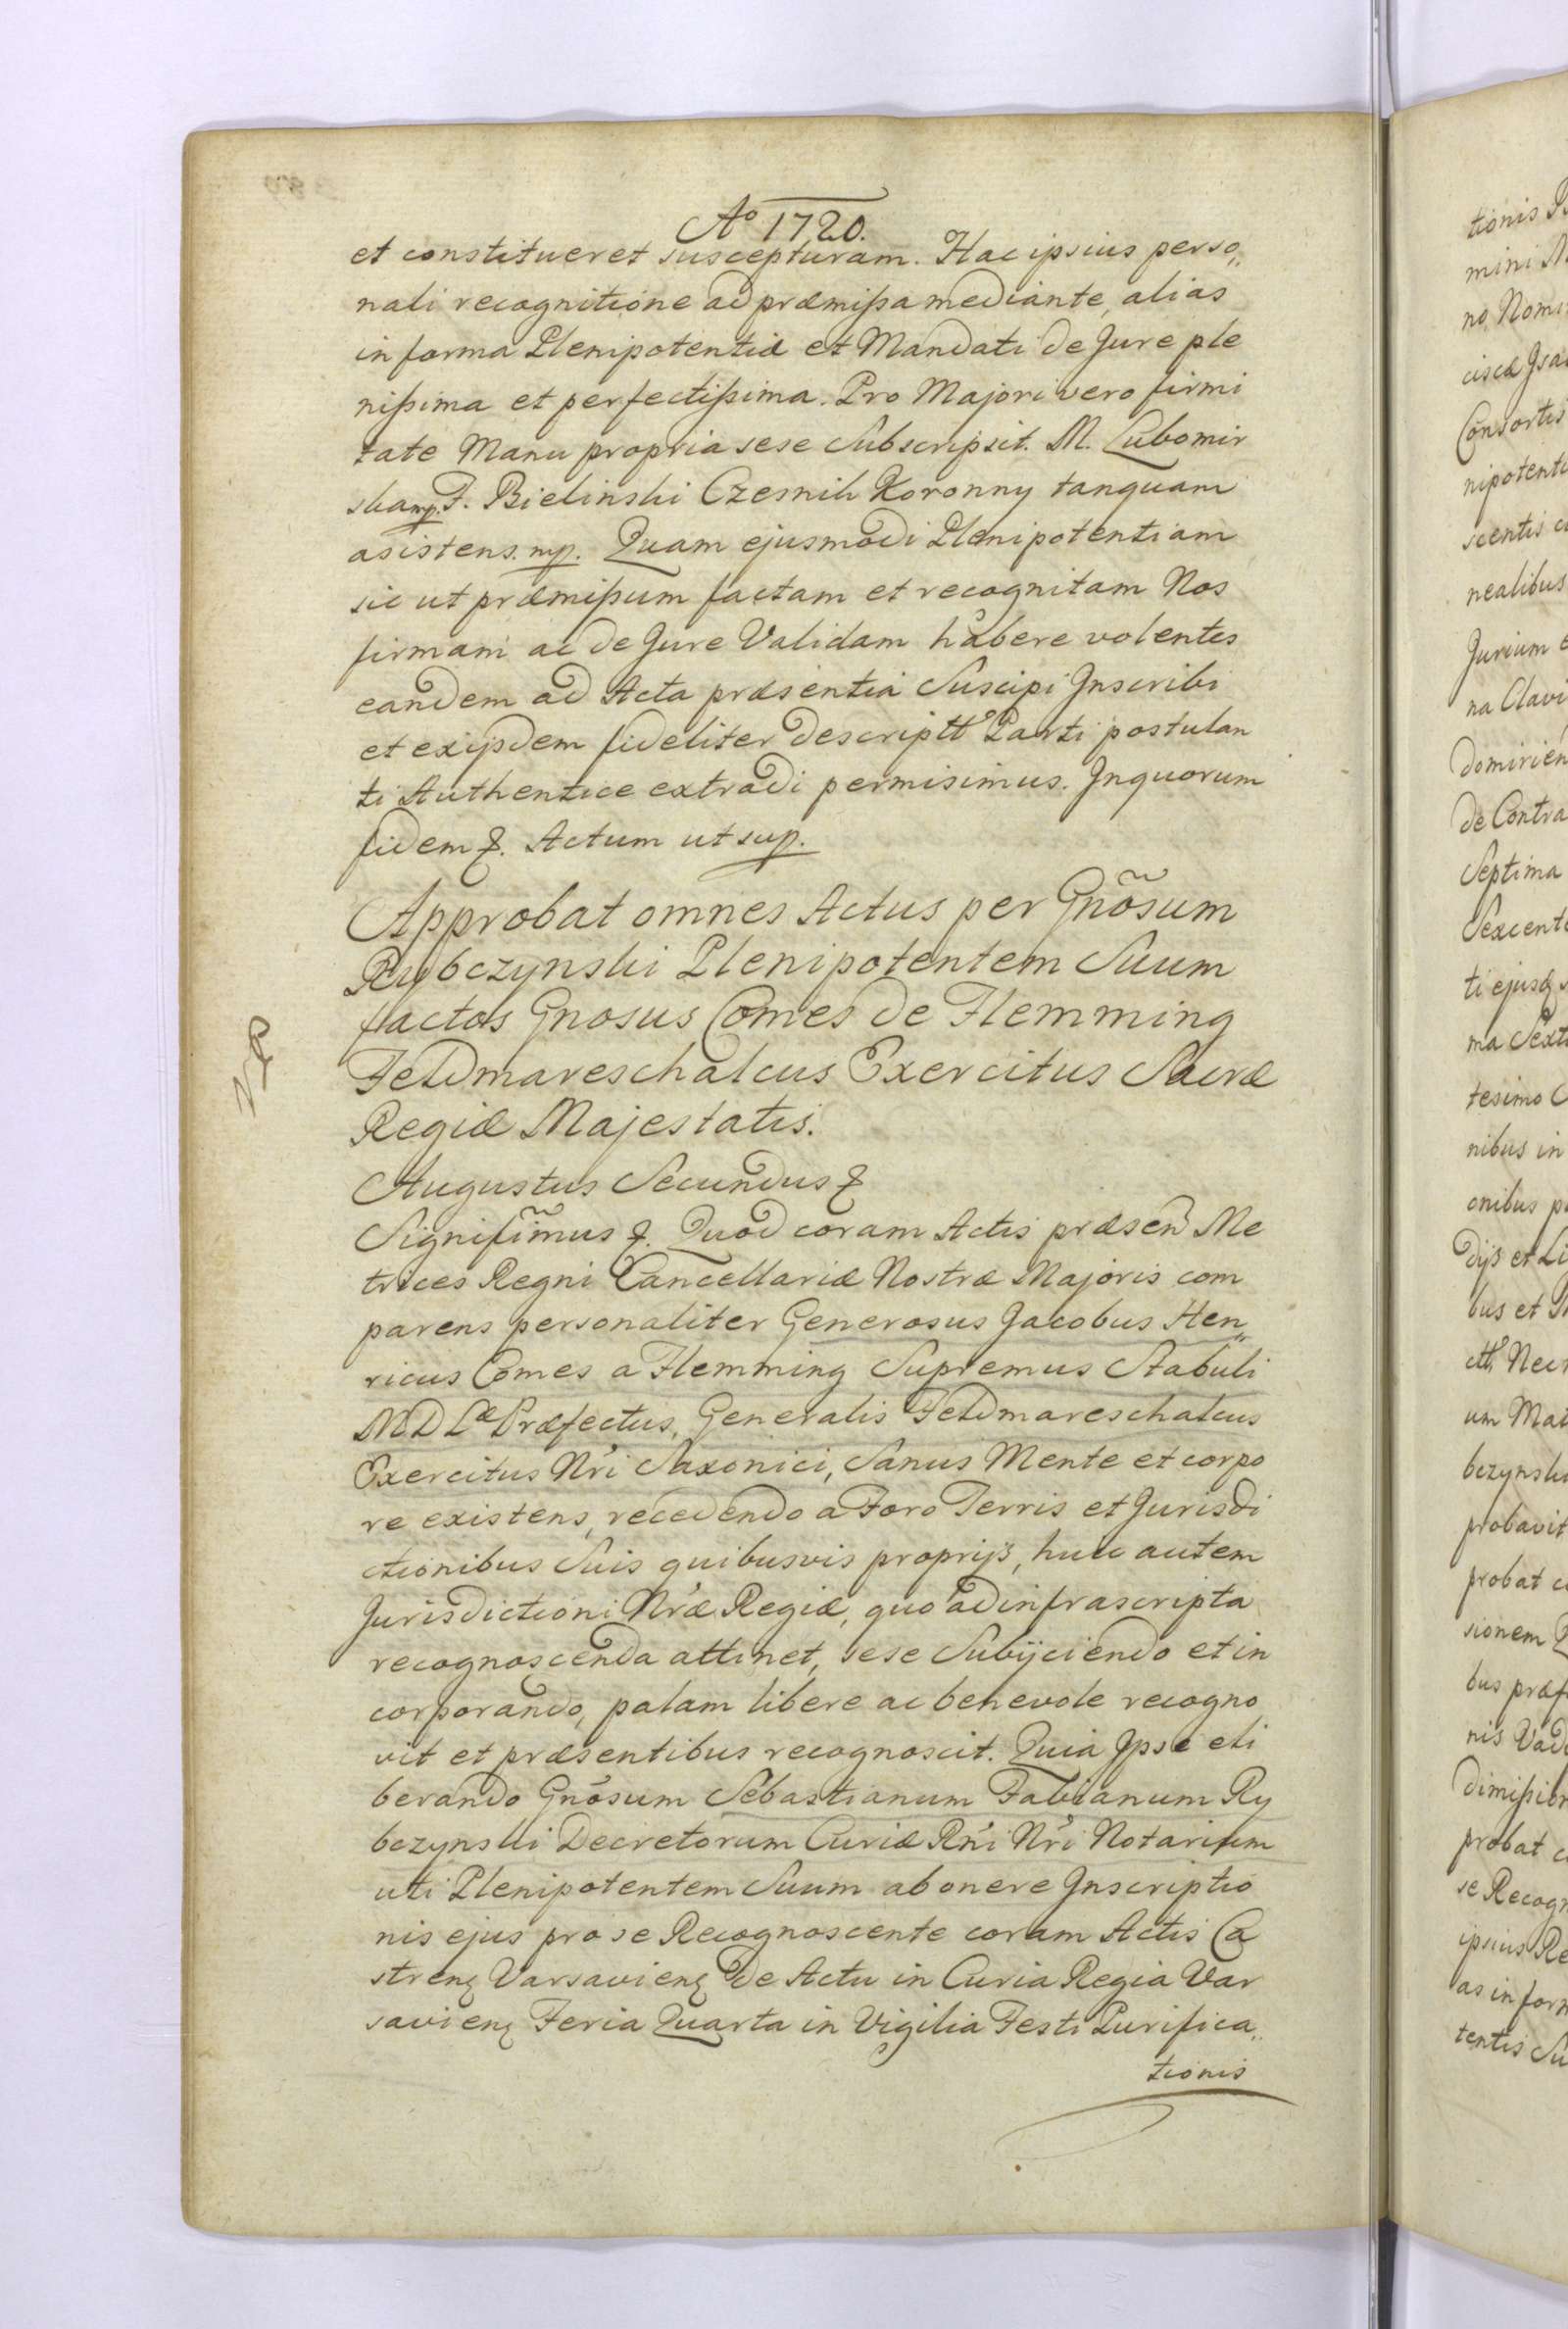 Aº 1720.
et constitueret suscepturam. Hac ipsius perso„
nali recognitione ad præmißa mediante, alias
in forma Plenipotentiæ et Mandati de Jure ple
nißima et perfectißima. Pro Majori vero firmi
tate Manu propria sese Subscripsit. M. Lubomir
ska mp. F. Bielinski Czesnik Koronny tanquam
asistens. mp. Quam ejusmodi Plenipotentiam
sic ut præmißum factam et recognitam Nos
firmam ac de Jure Validam habere volentes
eandem ad Acta præsentia Suscipi Jnscribi
et exijsdem fideliter descriptt Parti postulan
ti Authentice extradi permisimus. Jnquorum
fidem &. Actum ut sup.
Approbat omnes Actus per Gnõsum
Rybczynski Plenipotentem Suum
factos Gnosus Comes de Flemming
Feldmareschalcus Exercitus Sacræ
Regiæ Majestatis.
Augustus Secundus &
Signifim̃us &. Quod coram Actis præsen Me
trices Regni Cancellariæ Nostræ Majoris com
parens personaliter Generosus Jacobus Hen„
ricus Comes a Flemming Supremus Stabuli
M D Læ Præfectus, Generalis Feldmareschalcus
Exercitus Nri Saxonici, Sanus Mente et corpo
re existens, recedendo a Foro Terris et Jurisdi
ctionibus Suis quibusvis proprijs, huic autem
Jurisdictioni Nræ Regiæ, quo ad infrascripta
recognoscenda attinet, sese Subijciendo et in
corporando, palam libere ac benevole recogno
vit et præsentibus recognoscit. Quia Jpse eli
berando Gnosum Sebastianum Fabianum Ry
bczynski Decretorum Curiæ Rni Nri Notarium
uti Plenipotentem Suum ab onere Jnscriptio
nis ejus pro se Recognoscente coram Actis Ca
streñ Varsavieñ de Actu in Curia Regia Var
savieñ Feria Quarta in Vigilia Festi Purifica„
tionis
tionis
mini
no Nomi
ciscæ Jsa
Consortis
nipotenti
scentis
nealibus
Jurium
na Clavi
domirien
de Contra
Septima
Sexcent
ti ejusq
ma Sext
tesimo
nibus in
onibus
dijs et Li
bus et
Nec
um Mat
bczynski
probavit
probat
sionem
bus præf
nis Vad
dimißion
probat
se Recog
ipsius Re
as in form
tentis Su